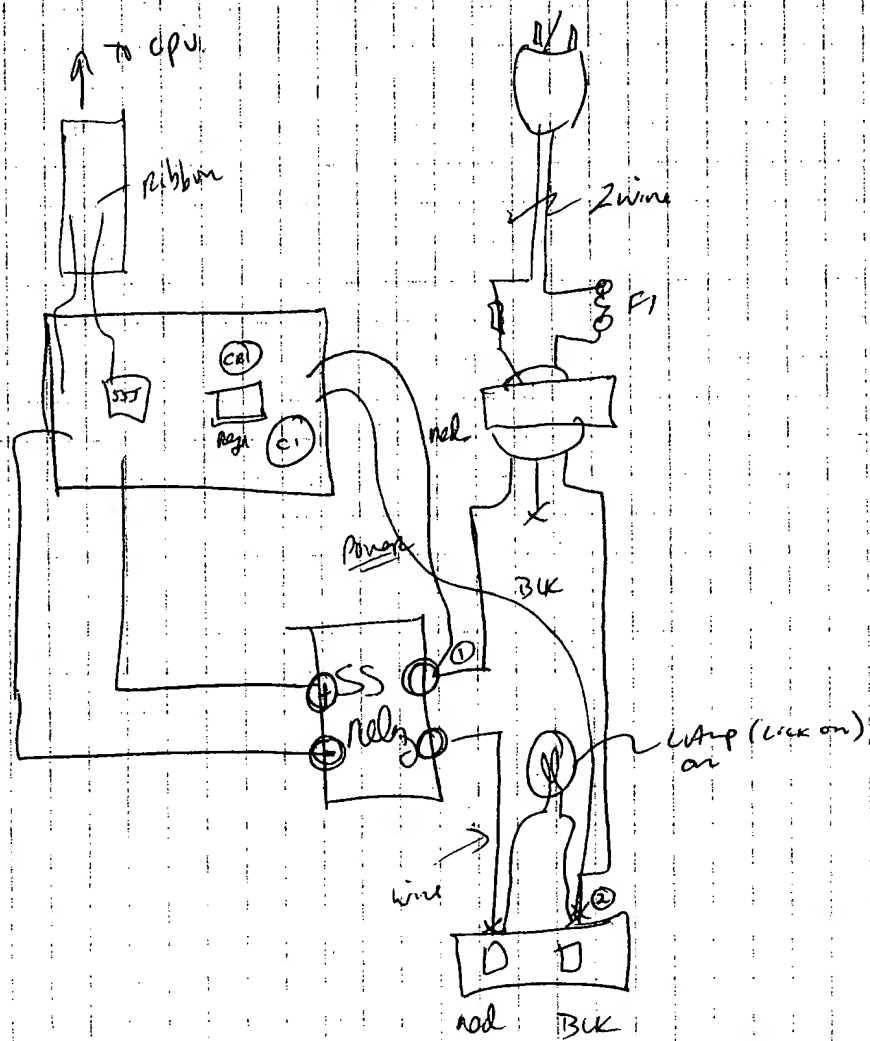 To CPU
Ribbon
2 wire
F1
CR1
SSJ
Regr
C1
red
Power
BLK
①
+ SS
- Relay
Lamp (Lick on)
on
wire
②
red BLK